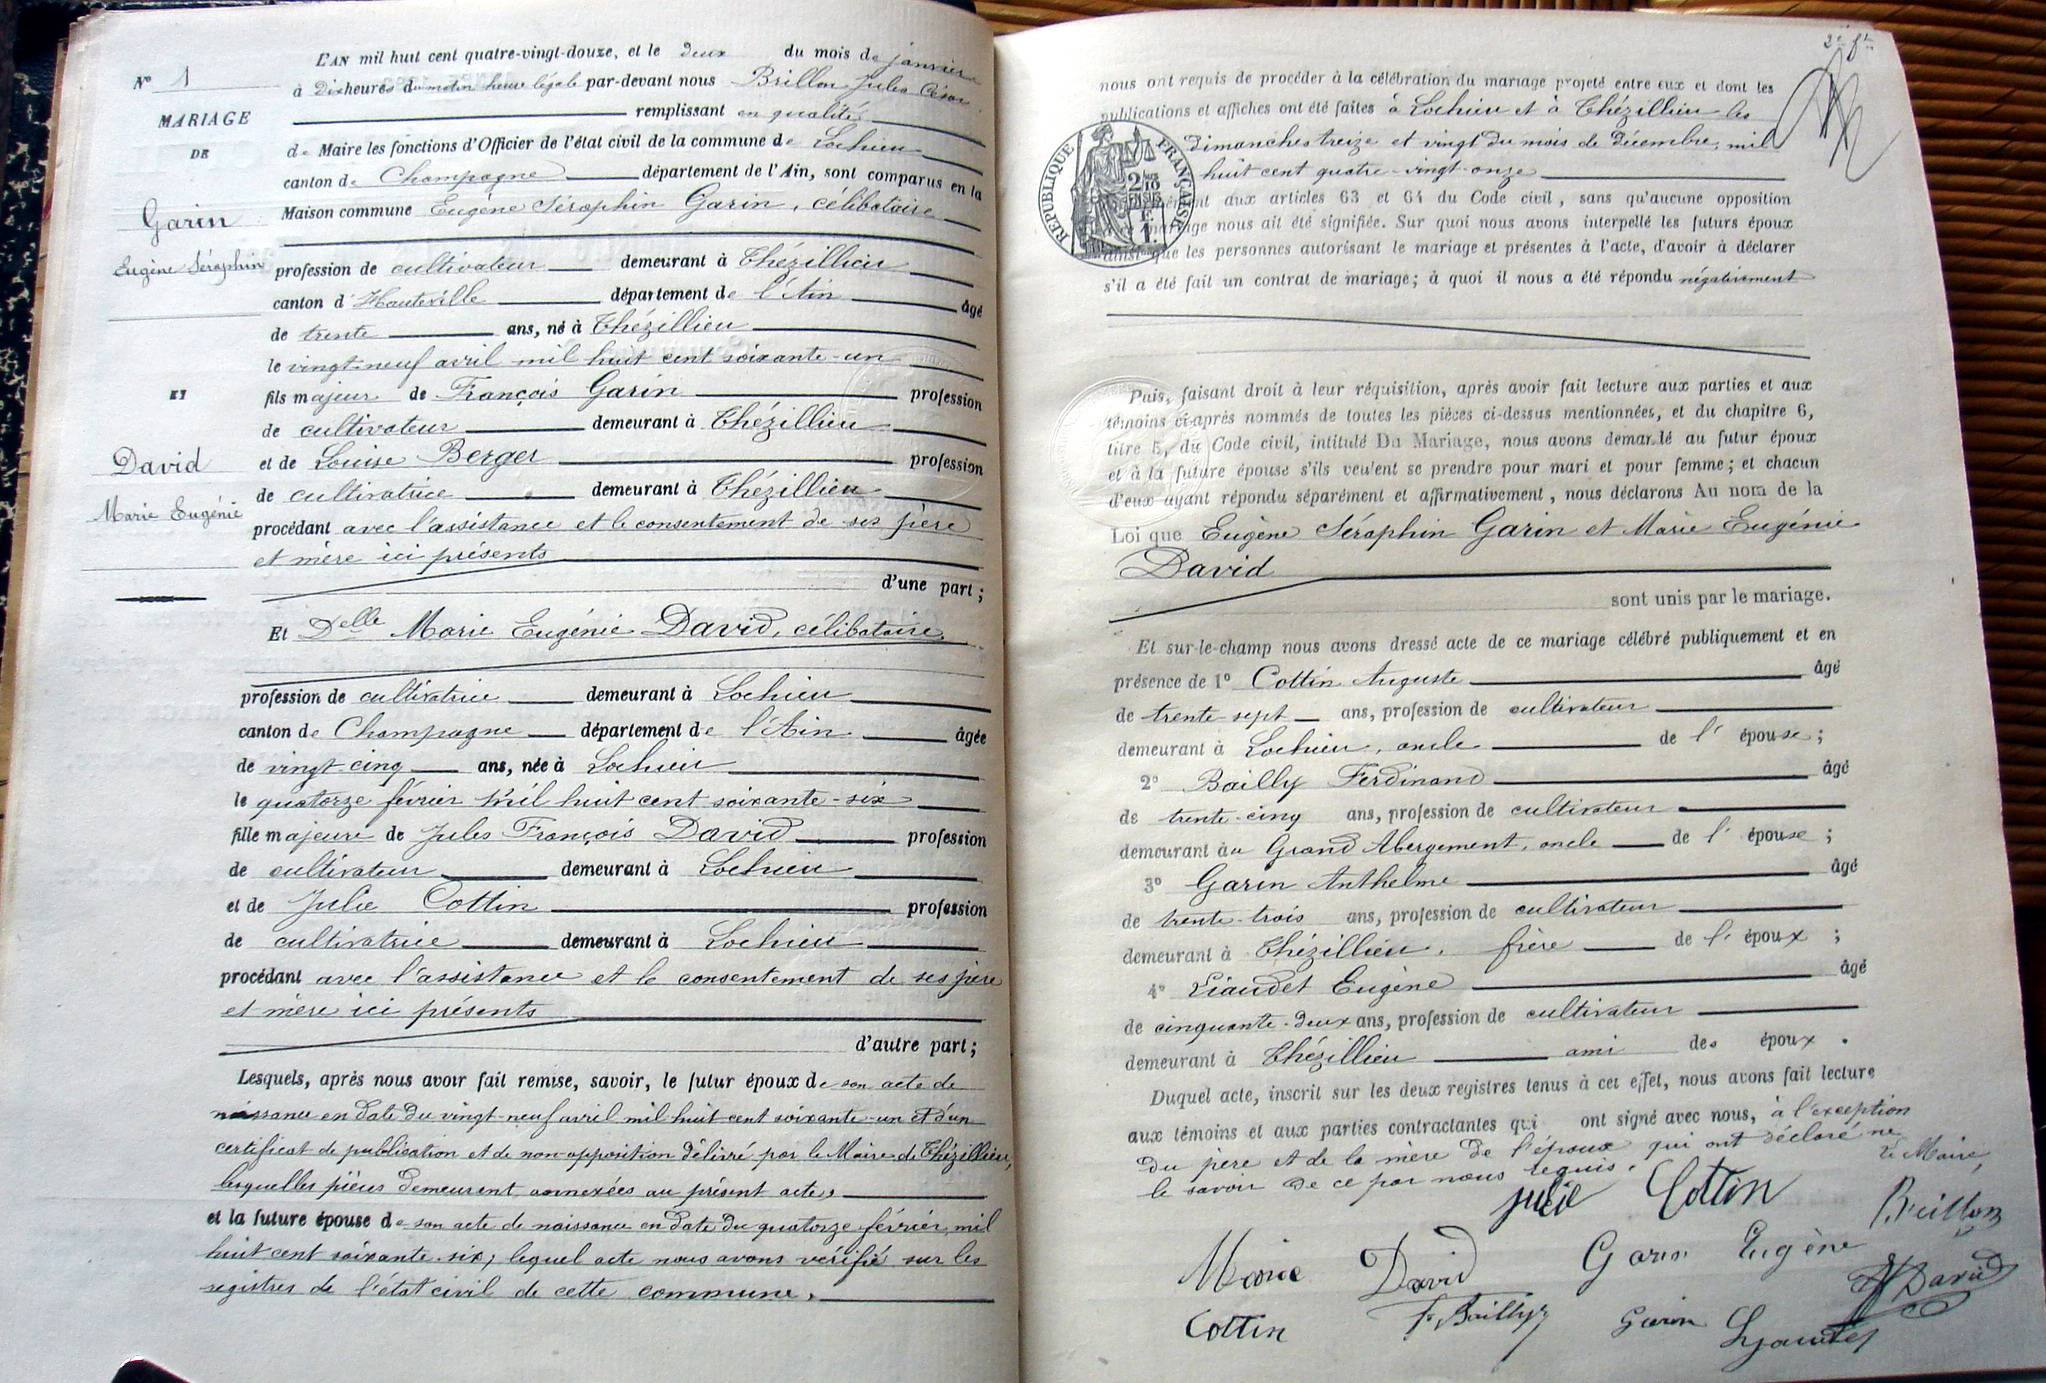 N° 1
MARIAGE
DE
Garin
Eugène Séraphin
ET
David
Marie Eugénie
L'AN mil huit cent quatre-vingt-douze, et le deux du mois de janvier
à Dix heures du matin heure légale par-devant nous Brillon Jules César
remplissant en qualité
de Maire les fonctions d'Officier de l'état civil de la commune de Lochieu
canton de Champagne département de l'Ain, sont comparus en la
Maison commune Eugène Séraphin Garin, célibataire
profession de cultivateur demeurant à Thézillieu
canton d'Hauteville département de l'Ain âgé
de trente ans, né à Thézillieu
le vingt-neuf avril mil huit cent soixante-un
fils majeur de François Garin profession
de cultivateur demeurant à Thézillieu
et de Louise Berger profession
de cultivatrice demeurant à Thézillieu
procédant avec l'assistance et le consentement de ses père
et mère ici présents
d'une part ;
Et Delle Marie Eugénie David, célibataire,
profession de cultivatrice demeurant à Lochieu
canton de Champagne département de l'Ain âgée
de vingt-cinq ans, née à Lochieu
le quatorze février mil huit cent soixante-six
fille majeure de Jules François David profession
de cultivateur demeurant à Lochieu
et de Julie Cottin profession
de cultivatrice demeurant à Lochieu
procédant avec l'assistance et le consentement de ses père
et mère ici présents
d'autre part ;
Lesquels, après nous avoir fait remise, savoir, le futur époux de son acte de
naissance en date du vingt-neuf avril mil huit cent soixante-un et d'un
certificat de publication et de non opposition délivré par le Maire de Thézillieu,
lesquelles pièces demeurent annexées au présent acte,
et la future épouse de son acte de naissance en date du quatorze février mil
huit cent soixante-six, lequel acte nous avons vérifié sur les
registres de l'état civil de cette commune,
2e ft
nous ont requis de procéder à la célébration du mariage projeté entre eux et dont les
publications et affiches ont été faites à Lochieu et à Thézillieu les
dimanches treize et vingt du mois de décembre, mil
huit cent quatre-vingt-onze
RÉPUBLIQUE FRANÇAISE
aux articles 63 et 64 du Code civil, sans qu'aucune opposition
nous ait été signifiée. Sur quoi nous avons interpellé les futurs époux
ainsi que les personnes autorisant le mariage et présentes à l'acte, d'avoir à déclarer
s'il a été fait un contrat de mariage ; à quoi il nous a été répondu négativement
Puis, faisant droit à leur réquisition, après avoir fait lecture aux parties et aux
témoins ci-après nommés de toutes les pièces ci-dessus mentionnées, et du chapitre 6,
titre 5, du Code civil, intitulé Du Mariage, nous avons demandé au futur époux
et à la future épouse s'ils veulent se prendre pour mari et pour femme ; et chacun
d'eux ayant répondu séparément et affirmativement, nous déclarons Au nom de la
Loi que Eugène Séraphin Garin et Marie Eugénie
David
sont unis par le mariage.
Et sur-le-champ nous avons dressé acte de ce mariage célébré publiquement et en
présence de 1° Cottin Auguste âgé
de trente-sept ans, profession de cultivateur
demeurant à Lochieu, oncle de l'épouse ;
2° Bailly Ferdinand âgé
de trente-cinq ans, profession de cultivateur
demeurant au Grand Abergement, oncle de l'épouse ;
3° Garin Anthelme âgé
de trente-trois ans, profession de cultivateur
demeurant à Thézillieu, frère de l'époux ;
4° Liaudet Eugène âgé
de cinquante-deux ans, profession de cultivateur
demeurant à Thézillieu ami des époux.
Duquel acte, inscrit sur les deux registres tenus à cet effet, nous avons fait lecture
aux témoins et aux parties contractantes qui ont signé avec nous, à l'exception
du père et de la mère de l'époux qui ont déclaré ne
le savoir de ce par nous requis.
Le Maire,
Julie Cottin
Brillon
Marie David
Garin Eugène
David
Cottin
F. Bailly
Garin
Lyaudet